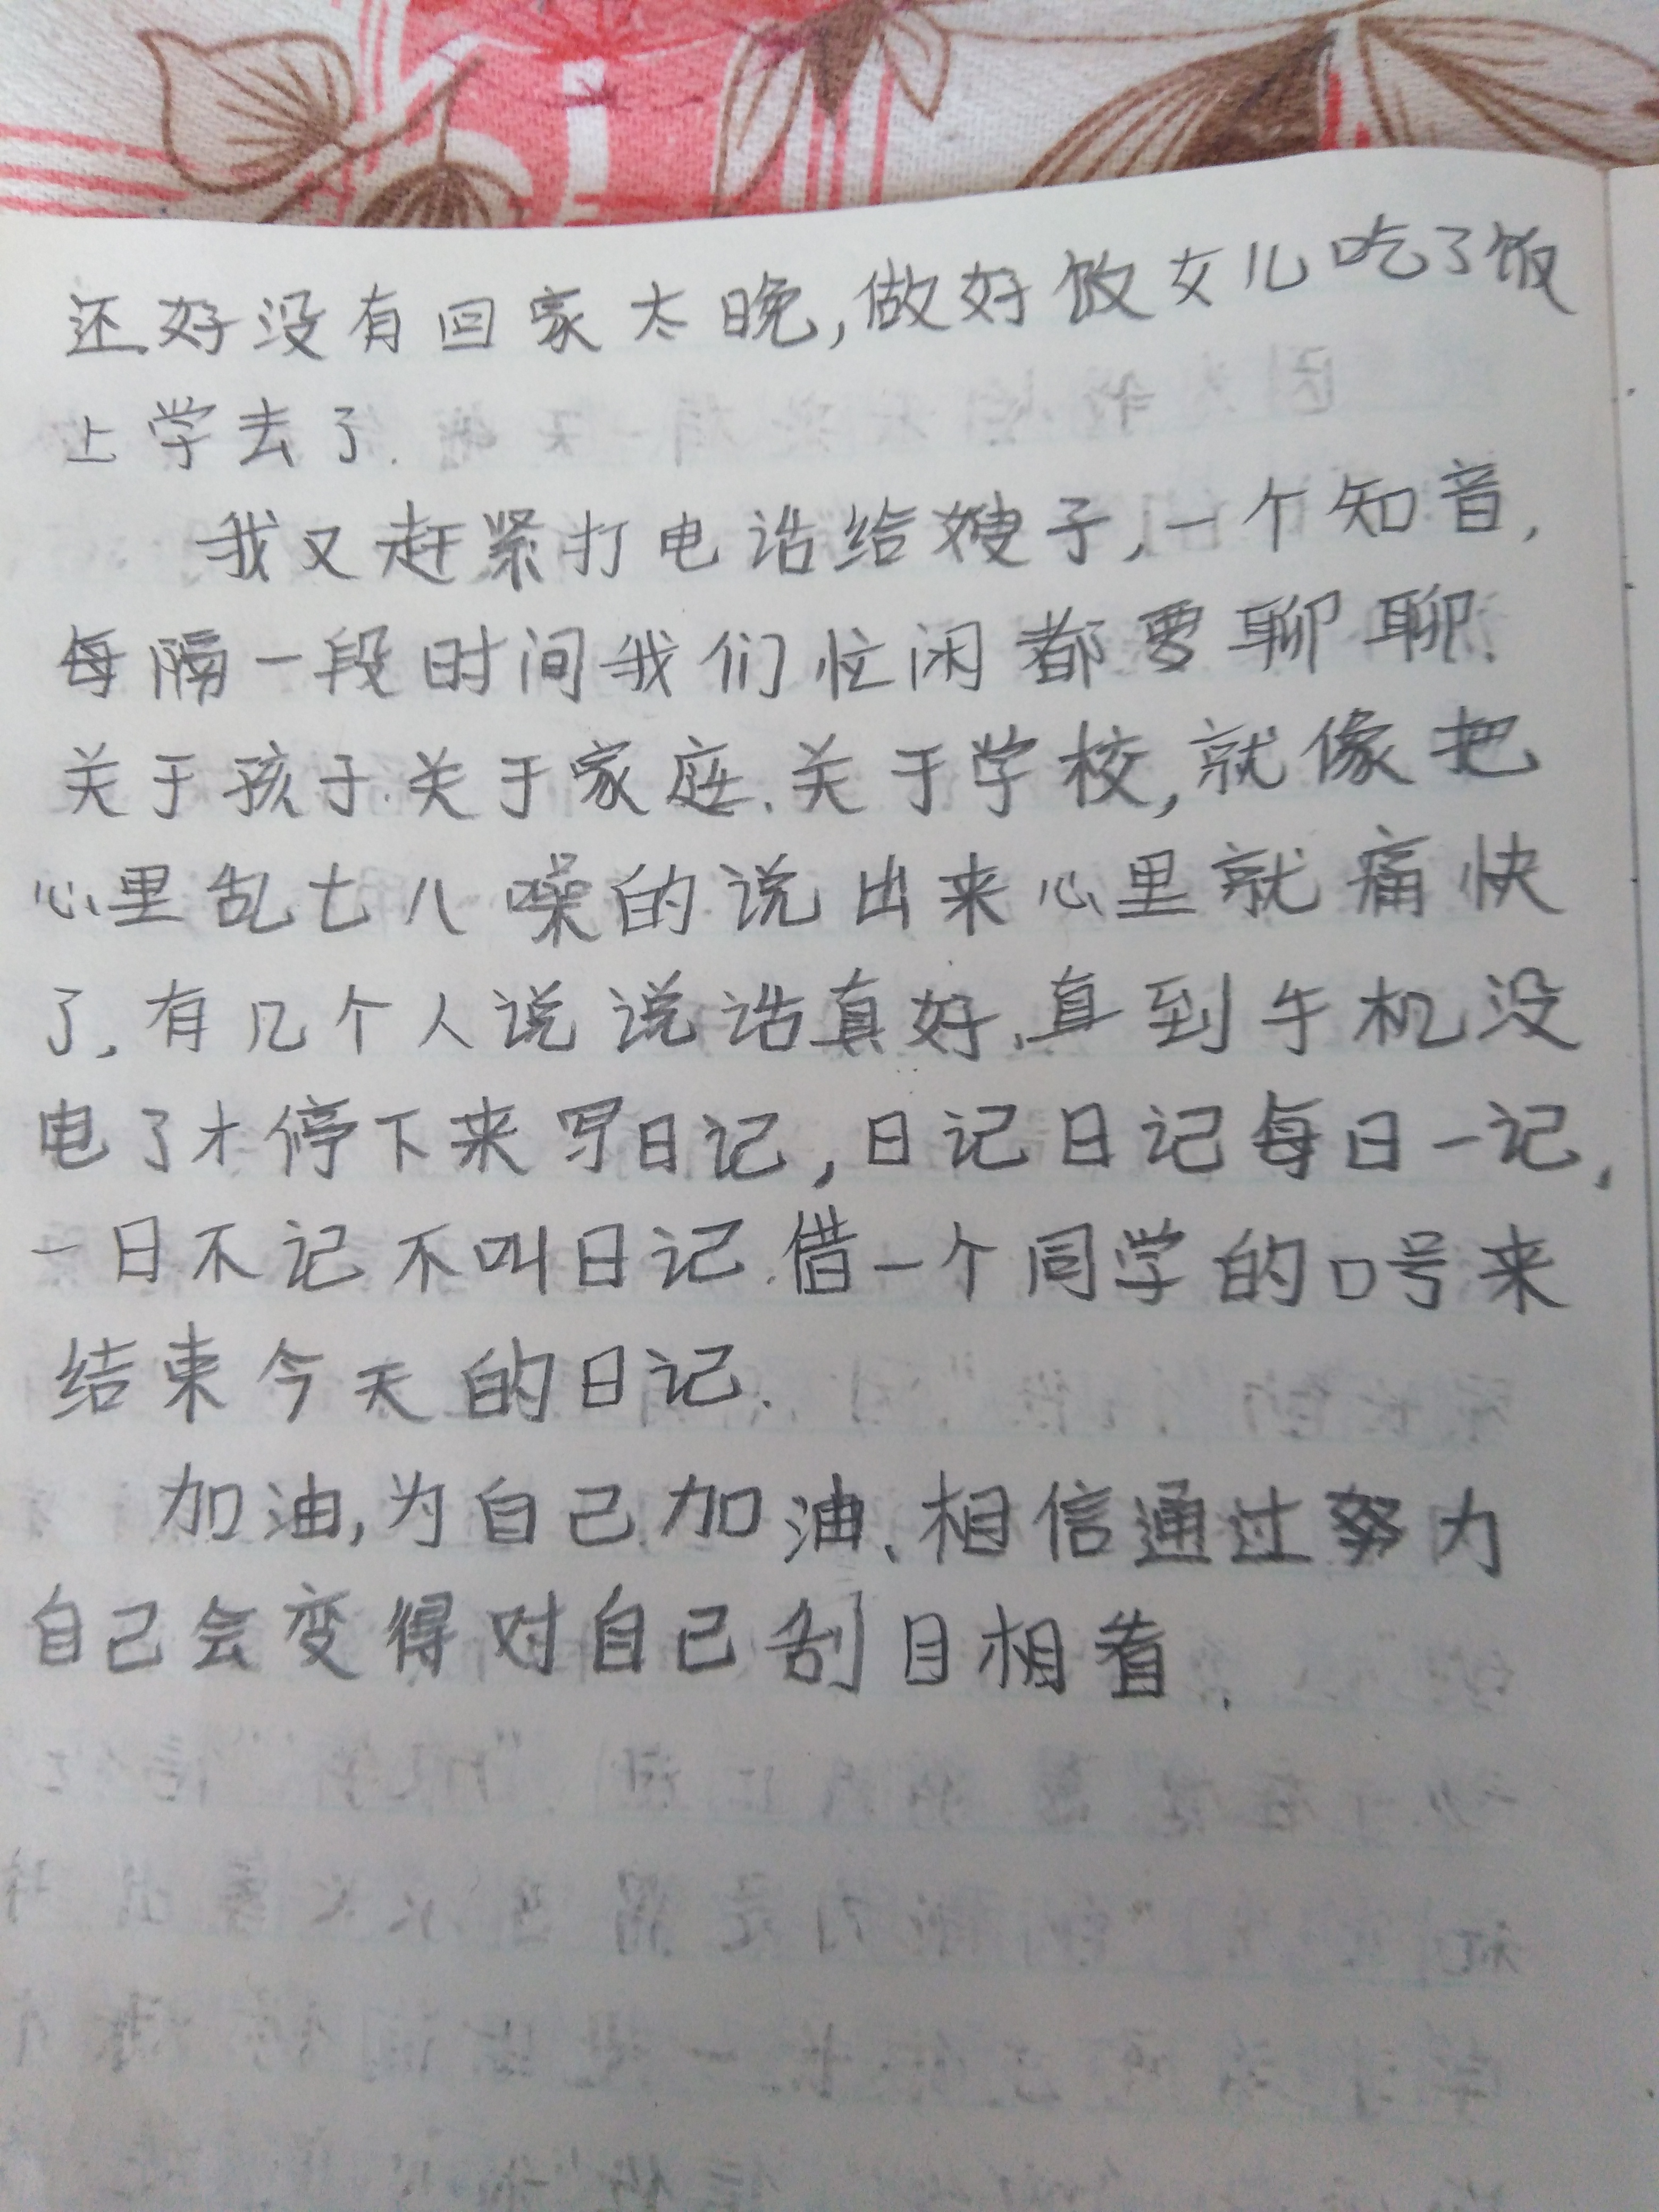 还好没有回家太晚,做好饭女儿吃了饭
上学去了.
我又赶紧打电话给嫂子,一个知音,
每隔一段时间我们忙闲都要聊聊.
关于孩子.关于家庭.关于学校,就像把
心里乱七八噪的说出来心里就痛快
了,有几个人说说话真好.直到手机没
电了才停下来写日记,日记日记每日一记,
一日不记不叫日记.借一个同学的口号来
结束今天的日记.
加油,为自己加油、相信通过努力
自己会变得对自己刮目相看.